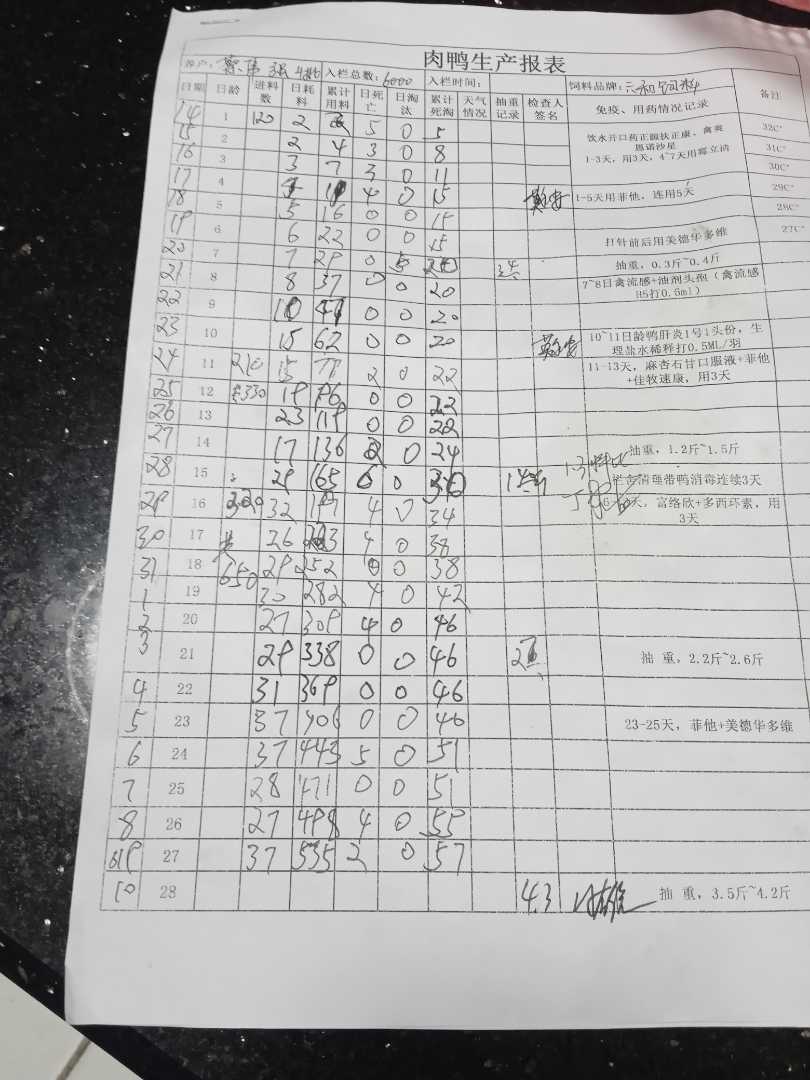 肉鸭生产报表
养户: 入栏总数: 6000 入栏时间: 饲料品牌: 六和饲料
日期 日龄 进料数 日耗料 累计用料 日死亡 日淘汰 累计死淘 天气情况 抽重记录 检查人签名 免疫、用药情况记录 备注
14 1 120 2 5 0 5 饮水开口药正源扶正康、禽爽 32C°
恩诺沙星
15 2 2 4 3 0 8 1-3天,用3天,4~7天用霉立清 31C°
16 3 3 7 3 0 11 30C°
17 4 4 0 15 1-5天用菲他,连用5天 29C°
18 5 5 16 0 0 15 28C°
19 6 6 22 0 0 15 打针前后用美德华多维 27C°
20 7 7 29 0 5 20 抽重,0.3斤~0.4斤
21 8 8 37 0 0 20 7~8日禽流感+油剂头孢(禽流感
H5打0.6ml)
22 9 10 47 0 0 20
23 10 15 62 0 0 20 10~11日龄鸭肝炎1号1头份,生
理盐水稀释打0.5ML/羽
24 11 210 15 77 2 0 22 11-13天,麻杏石甘口服液+菲他
+佳牧速康,用3天
25 12 330 19 96 0 0 22
26 13 23 119 0 0 22
27 14 17 136 2 0 24 抽重,1.2斤~1.5斤
28 15 29 165 6 0 30 清理带鸭消毒连续3天
29 16 320 32 197 4 0 34 天,富络欣+多西环素,用
3天
30 17 26 223 4 0 38
31 18 650 29 252 0 0 38
1 19 30 282 4 0 42
2 20 27 309 4 0 46
3 21 29 338 0 0 46 抽 重,2.2斤~2.6斤
4 22 31 369 0 0 46
5 23 37 406 0 0 46 23-25天,菲他+美德华多维
6 24 37 443 5 0 51
7 25 28 471 0 0 51
8 26 27 498 4 0 55
9 27 37 535 2 0 57
10 28 4.3 抽 重,3.5斤~4.2斤